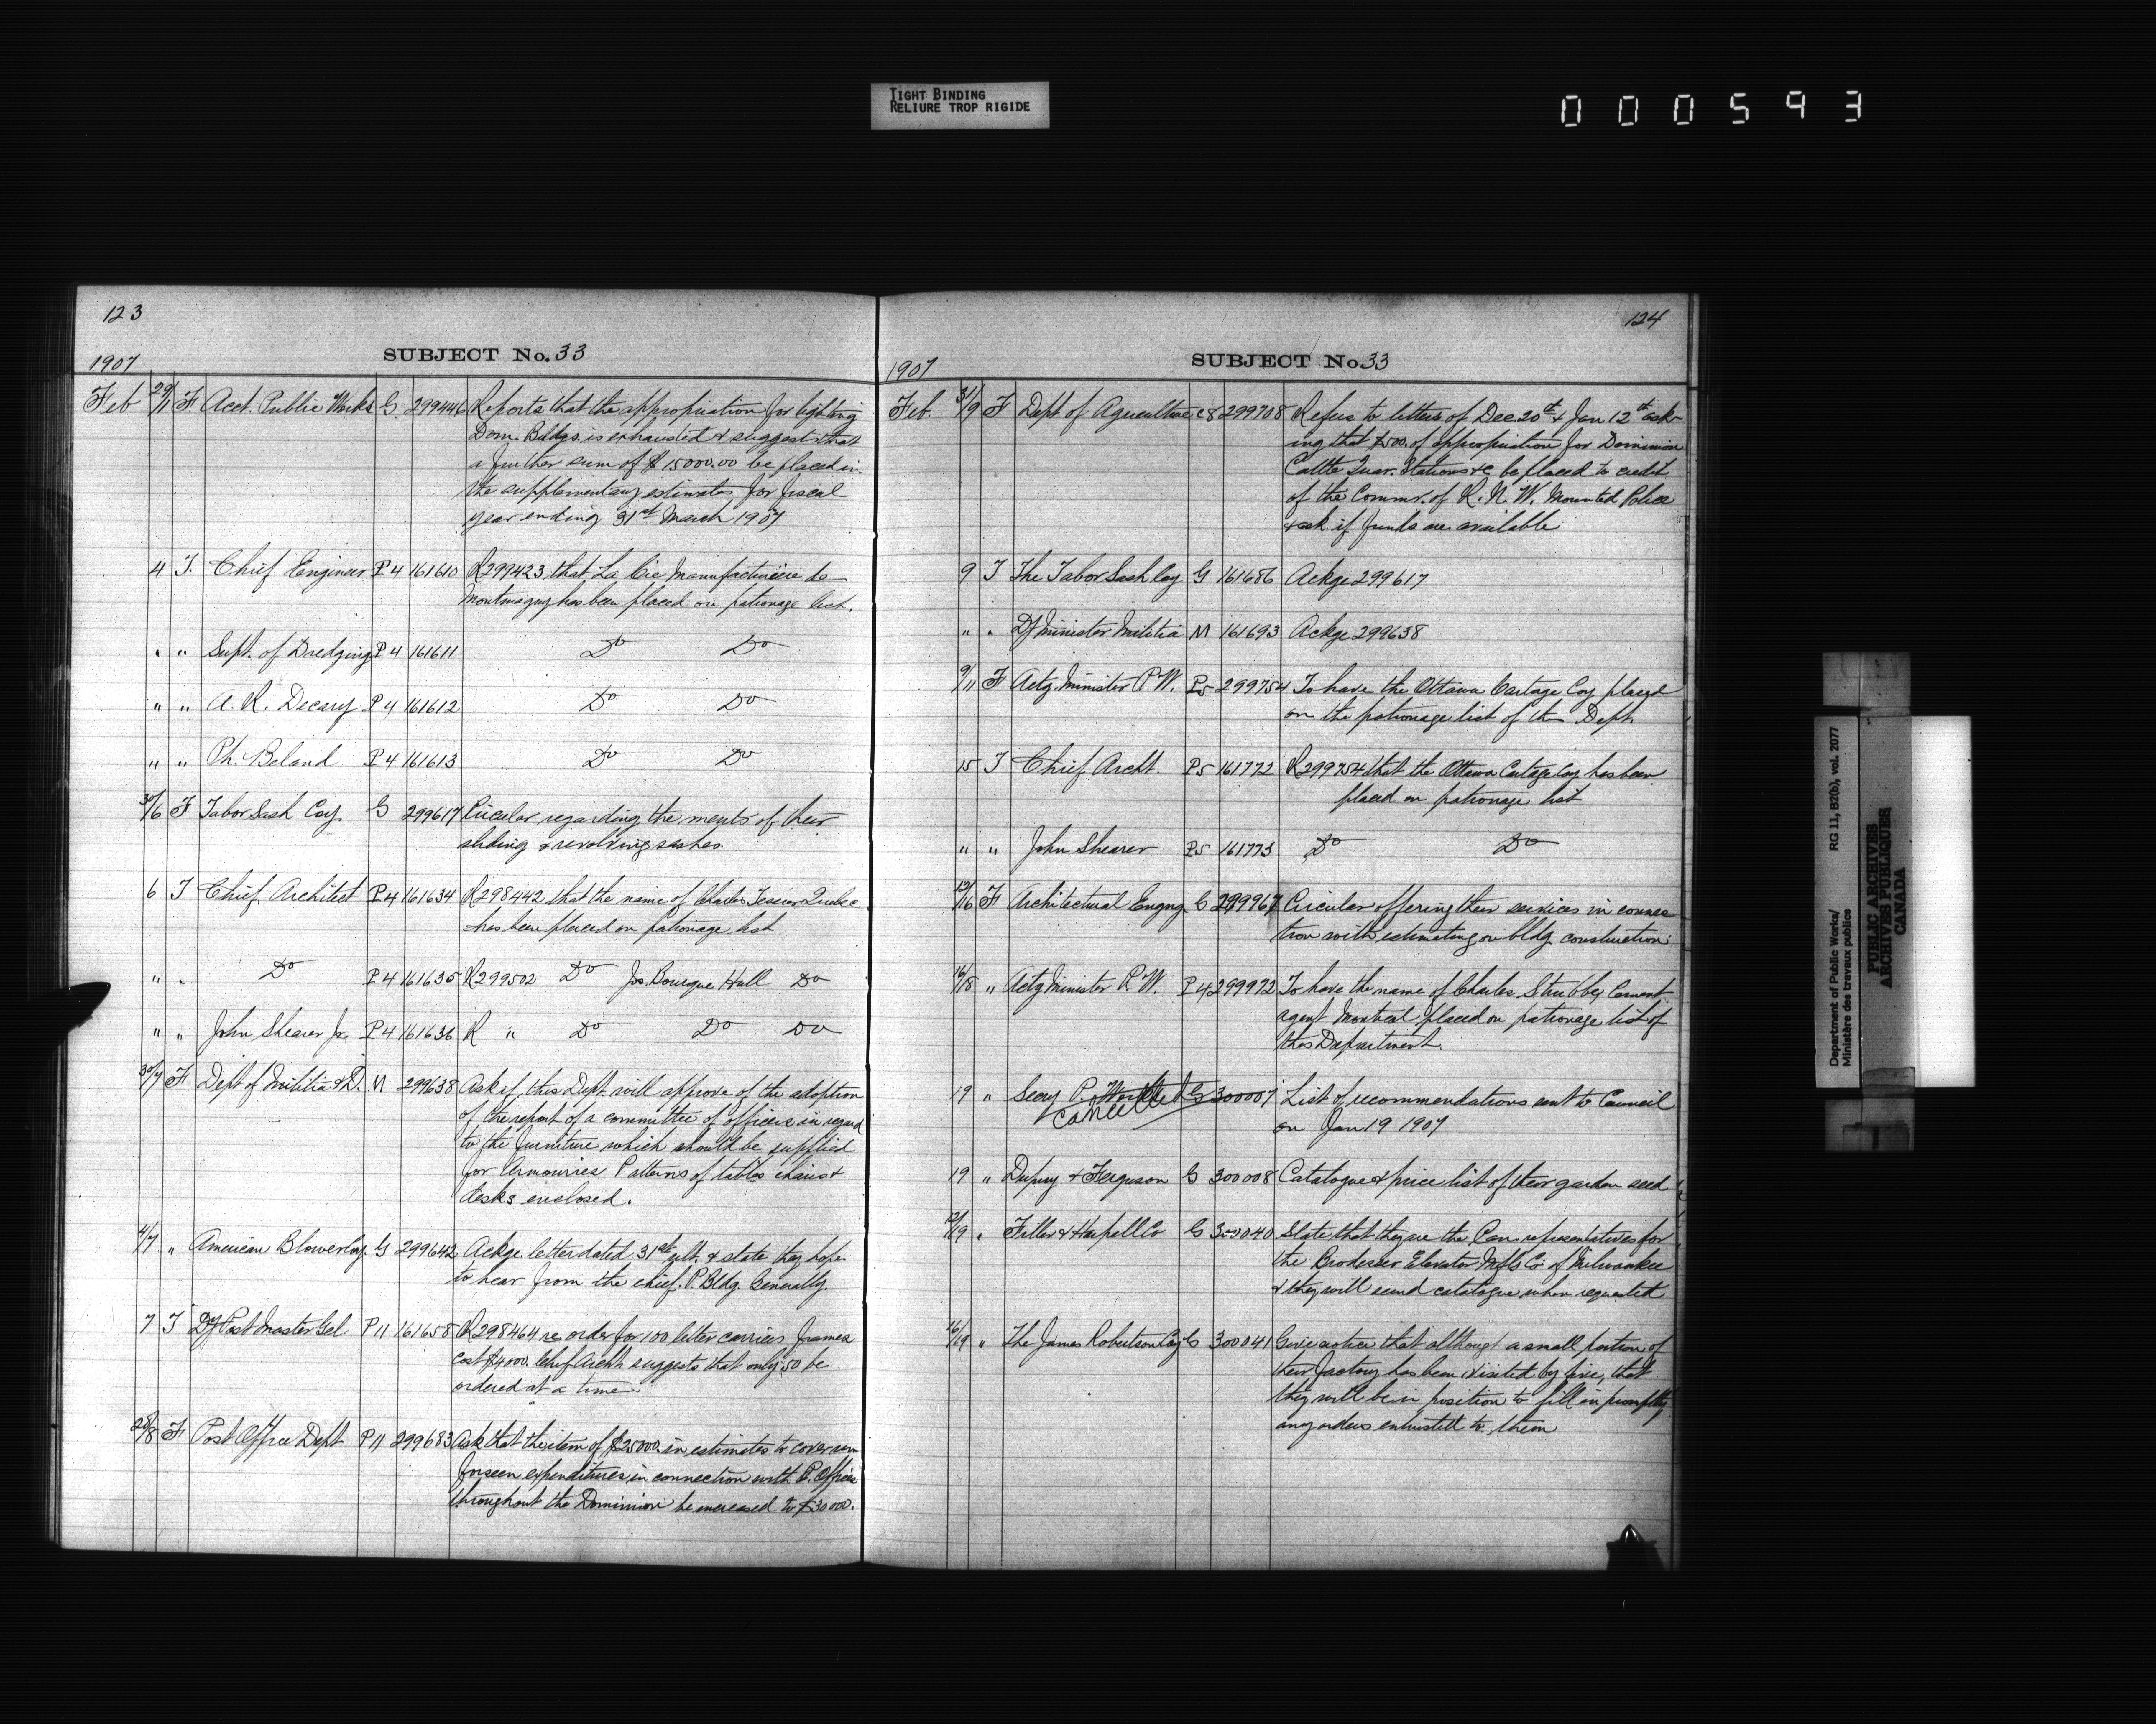 TIGHT BINDING
RELIURE TROP RIGIDE
000593
123
SUBJECT No. 33
1907
Feb 29/11 F Acct. Public Works G 299446 Reports that the appropriation for lighting
Dom. Bldgs. is exhausted & suggests that
a further sum of $15000.00 be placed in
the supplementary estimates for fiscal
year ending 31st March 1907
4 T. Chief Engineer P4 161610 R299423 that La Cie Manufacturière de
Montmagny has been placed on patronage list.
" " Supt. of Dredging P4 161611 Do Do
" " A. R. Decary P4 161612 Do Do
" " Ph. Beland P4 161613 Do Do
30/6 F Tabor Sash Coy. G 299617 Circular regarding the merits of their
sliding & revolving sashes.
6 T Chief Architect P4 161634 R298442 that the name of Charles Tessier Quebec
has been placed on patronage list
" " Do P4 161635 R299502 Do Jos. Bourque Hull Do
" " John Shearer Jr. P4 161636 R " Do Do Do
30/7 F Dept of Militia & D. M 299638 Ask if this Dept. will approve of the adoption
of the report of a committee of officers in regard
to the furniture which should be supplied
for Armouries Patterns of tables chairs &
desks enclosed.
4/7 " American Blower Coy. G 299642 Ackge letter dated 31st ult. & state they hope
to hear from the chief. P. Bldg. Generally.
7 T Dy Post Master Gel P11 161658 R298464 re order for 100 letter carriers frames
cost $4000. Chief Archt suggests that only 50 be
ordered at a time.
28/8 F Post Office Dept P11 299683 Ask that the item of $25000. in estimates to cover un
forseen expenditures in connection with P. Offices
throughout the Dominion be increased to $30000.
124
SUBJECT No 33
1907
Feb. 31/9 F Dept of Agriculture C8 299708 Refers to letters of Dec. 20th & Jan 12th ask-
ing that $500. of appropriation for Dominion
Cattle Quar. Stations &c be placed to credit
of the Commr. of R. N. W. Mounted Police
& ask if funds are available
9 T The Tabor Sash Coy G 161686 Ackge 299617
" " Dy Minister Militia M 161693 Ackge 299638
9/11 F Actg. Minister P.W. P5 299754 To have the Ottawa Cartage Coy placed
on the patronage list of this Dept.
15 T Chief Archt. P5 161772 R299754 that the Ottawa Cartage Coy has been
placed on patronage list
" " John Shearer P5 161773 Do Do
12/16 F Architectural Engng. G 299967 Circular offering their services in connec
tion with estimating on bldg. construction.
16/18 " Actg Minister P.W. P4 299972 To have the name of Charles Cement
agent Montreal placed on patronage list of
this Department.
19 " Secry P. Works G 300007 List of recommendations sent to Council
cancelled
on Jan 19 1907
19 " Dupuy & Ferguson G 300008 Catalogue & price list of their garden seed
12/19 " G 300040 State that they are the Can. representatives for
the Brodesser Elevator Mfg Co. of Milwaukee
& they will send catalogue when requested
16/19 " The James Robertson Coy G 300041 Give notice that although a small portion of
their factory has been visited by fire, that
they will be in position to fill in promptly
any orders entrusted to them
Department of Public Works/
Ministère des travaux publics
RG 11, B2(b), vol. 2077
PUBLIC ARCHIVES
ARCHIVES PUBLIQUES
CANADA